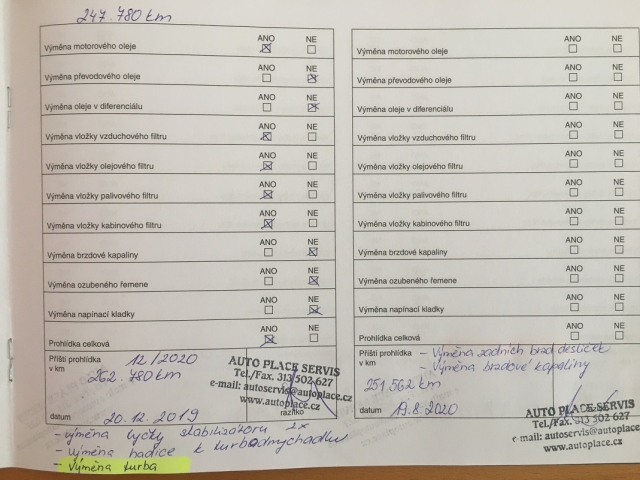 247.780 km
ANO NE
Výměna motorového oleje
ANO NE
Výměna převodového oleje
ANO NE
Výměna oleje v diferenciálu
ANO NE
Výměna vložky vzduchového filtru
ANO NE
Výměna vložky olejového filtru
ANO NE
Výměna vložky palivového filtru
ANO NE
Výměna vložky kabinového filtru
ANO NE
Výměna brzdové kapaliny
ANO NE
Výměna ozubeného řemene
ANO NE
Výměna napínací kladky
ANO NE
Prohlídka celková
Příští prohlídka
v km
12/2020
262.780 km
AUTO PLACE SERVIS
Tel./Fax. 313 502 627
e-mail: autoservis@autoplace.cz
www.autoplace.cz
datum
20.12.2019
razítko
- výměna tyčky stabilizátoru 2x
- výměna hadice k turbodmychadlu
- Výměna turba
ANO NE
Výměna motorového oleje
ANO NE
Výměna převodového oleje
ANO NE
Výměna oleje v diferenciálu
ANO NE
Výměna vložky vzduchového filtru
ANO NE
Výměna vložky olejového filtru
ANO NE
Výměna vložky palivového filtru
ANO NE
Výměna vložky kabinového filtru
ANO NE
Výměna brzdové kapaliny
ANO NE
Výměna ozubeného řemene
ANO NE
Výměna napínací kladky
ANO NE
Prohlídka celková
Příští prohlídka
v km
- Výměna zadních brzd. destiček
- Výměna brzdové kapaliny
251 562 km
datum
19.8.2020
AUTO PLACE SERVIS
Tel./Fax. 313 502 627
e-mail: autoservis@autoplace
www.autoplace.cz